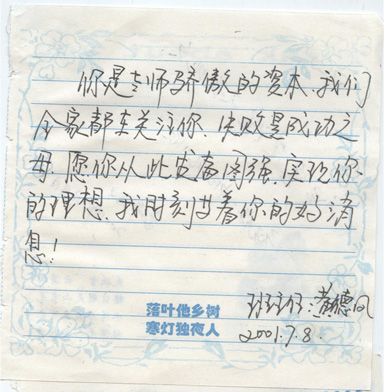 你是老师骄傲的资本.我们
全家都在关注你.失败是成功之
母.愿你从此发奋图强.实现你
的理想.我时刻甘着你的好消
息!
班班任:黄德风
2001.7.8.
落叶他乡树
寒灯独夜人